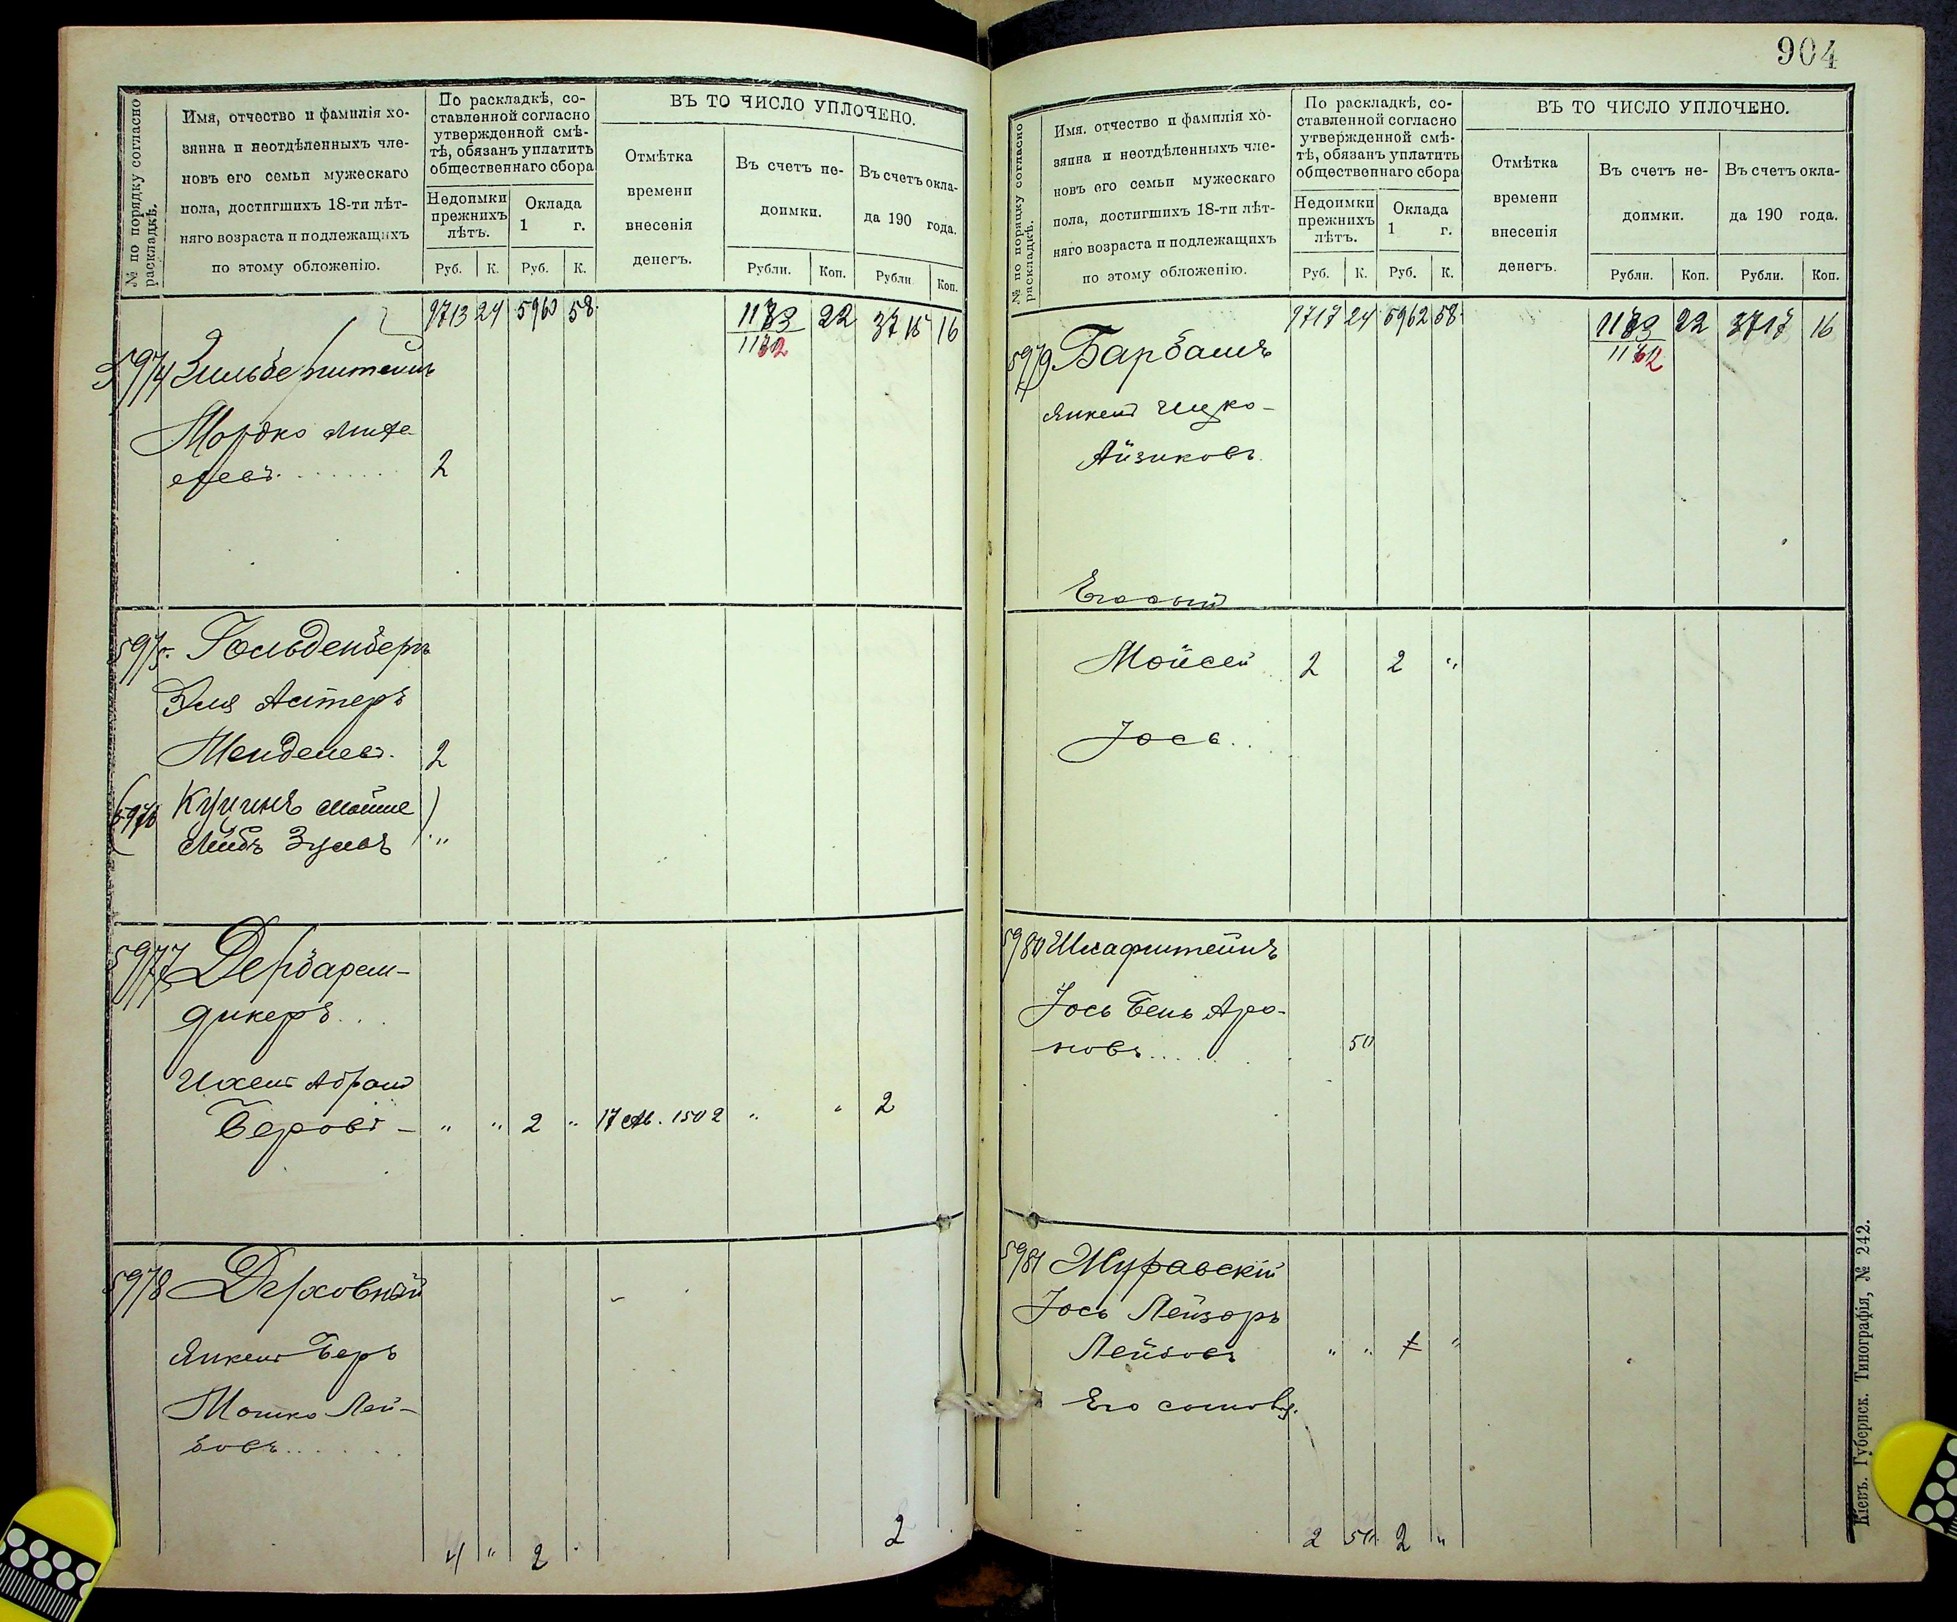 904
№ по порядку согласно раскладкѣ.
Имя, отчество и фамилія хо-
зяина и неотдѣленныхъ чле-
новъ его семьи мужескаго
пола, достигшихъ 18-ти лѣт-
няго возраста и подлежащихъ
по этому обложенію.
По раскладкѣ, со-
ставленной согласно
утвержденной смѣ-
тѣ, обязанъ уплатить
общественнаго сбора
Недоимки
прежнихъ
лѣтъ.
Оклада
1 г.
Руб. К. Руб. К.
ВЪ ТО ЧИСЛО УПЛОЧЕНО.
Отмѣтка
времени
внесенія
денегъ.
Въ счетъ не-
доимки.
Въ счетъ окла-
да 190 года.
Рубли. Коп. Рубли Коп.
9713 24 5960 58 1183 22 3715 16
1182
5974 Зильберштейнъ
Мордко
2
5975. Гольденберъ
Эля Астеръ
Менделевъ. 2
5976 Куцинъ Мошке
Лейбъ Зусевъ "
5977 Дербарем-
дикеръ...
Ихель Абрам
Беровъ - " " 2 " 17 Ав. 1502 " " 2
5978 Держовный
Янкель Беръ
Мошко Лей-
бовъ......
4 " 2 " 2
№ по порядку согласно раскладкѣ.
Имя, отчество и фамилія хо-
зяина и неотдѣленныхъ чле-
новъ его семьи мужескаго
пола, достигшихъ 18-ти лѣт-
няго возраста и подлежащихъ
по этому обложенію.
По раскладкѣ, со-
ставленной согласно
утвержденной смѣ-
тѣ, обязанъ уплатить
общественнаго сбора
Недоимки
прежнихъ
лѣтъ.
Оклада
1 г.
Руб. К. Руб. К.
ВЪ ТО ЧИСЛО УПЛОЧЕНО.
Отмѣтка
времени
внесенія
денегъ.
Въ счетъ не-
доимки.
Въ счетъ окла-
да 190 года.
Рубли. Коп. Рубли. Коп.
9717 24 5962 58 1183 22 3717 16
1182
5979 Барбашъ
Янкель Ицко-
Айзиковъ
Мойсей 2 2 "
Іось...
5980 Шкафштейнъ
Іось Бень Аро-
новъ..... 50
5981 Журавскій
Іось Лейзоръ
Лейбовъ " " "
Его сыновья.
2 50 2 "
Кіевъ. Губернск. Типографія, № 242.